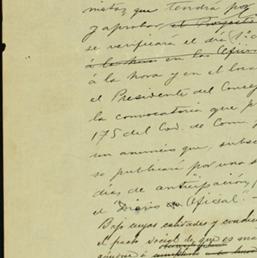 que tendrá por
y aprobar el Proyecto
se verificará el día 1º
á la hora en las Oficin
á la hora y en el loca
el Presidente del Consej
la convocatoria que p
175 del Cód. de Com. y
un anuncio que, subsc
se publicará por una s
días de anticipación,
el "Diario Oficial."
Bajo cuyas calidades y condic
el pacto social de que es ma
aunque á